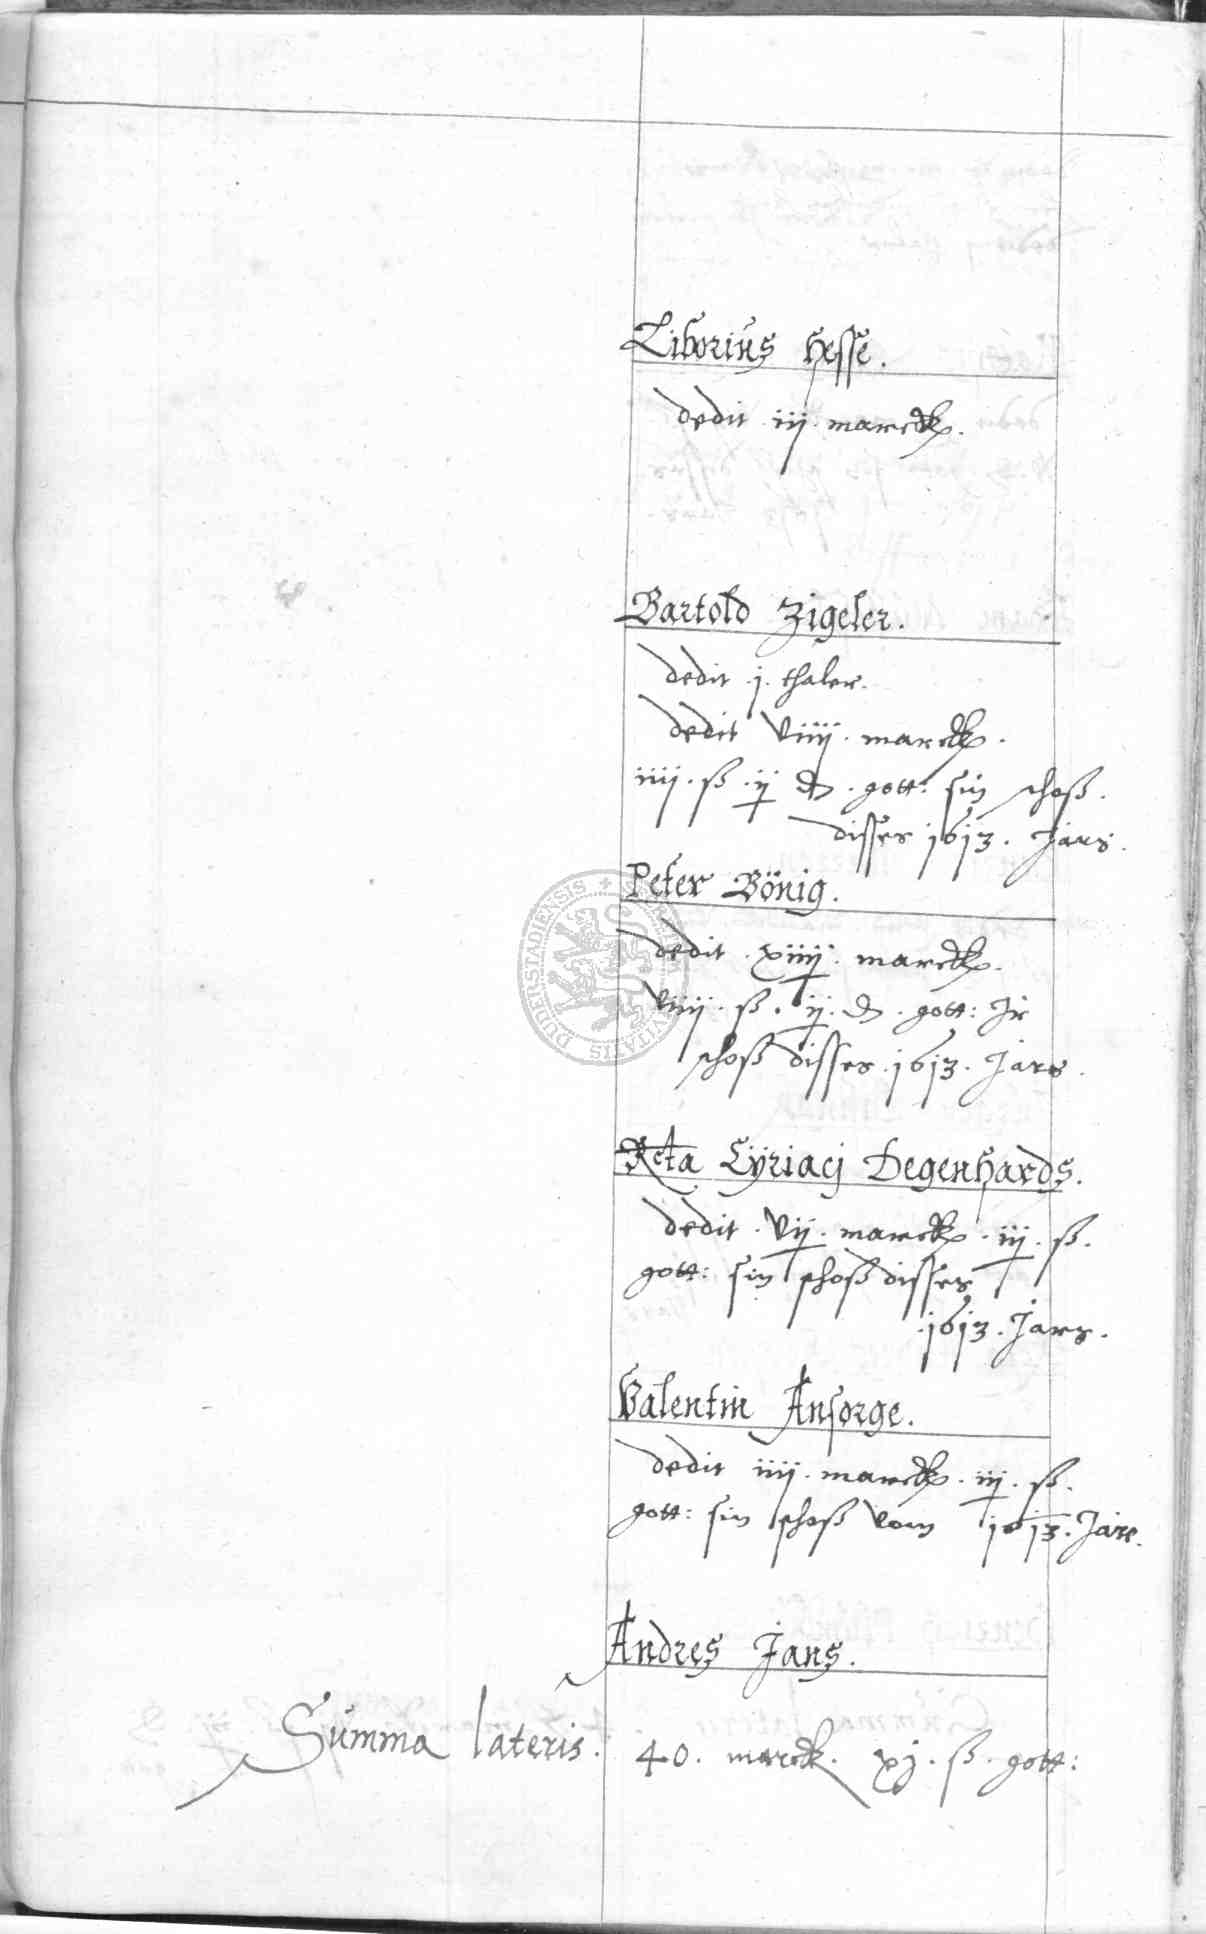 Liborius Hesse.
dedit iij marck.
Bartold Zigeler.
dedit j. thaler.
dedit viiij. marck.
iiij. ß. ij ₰. gott: sin schoß.
disses 1613. Jars.
Peter Bönig.
dedit. xiiij. marck.
viiij. ß. ij. ₰. gott: Jr
schoß disses. 1613. Jars.
Cÿriacj Degenhards.
dedit. vij. marck. iij. ß.
gott: sin schoß disses
.1613. Jars.
Valentin Ansorge.
dedit iiij. marck. iij. ß.
gott: sin schoß vom 1613. Jare.
Andres Jans.
Summa lateris. 40. marck. xj. ß. gott:
DUDERSTADIENSIS